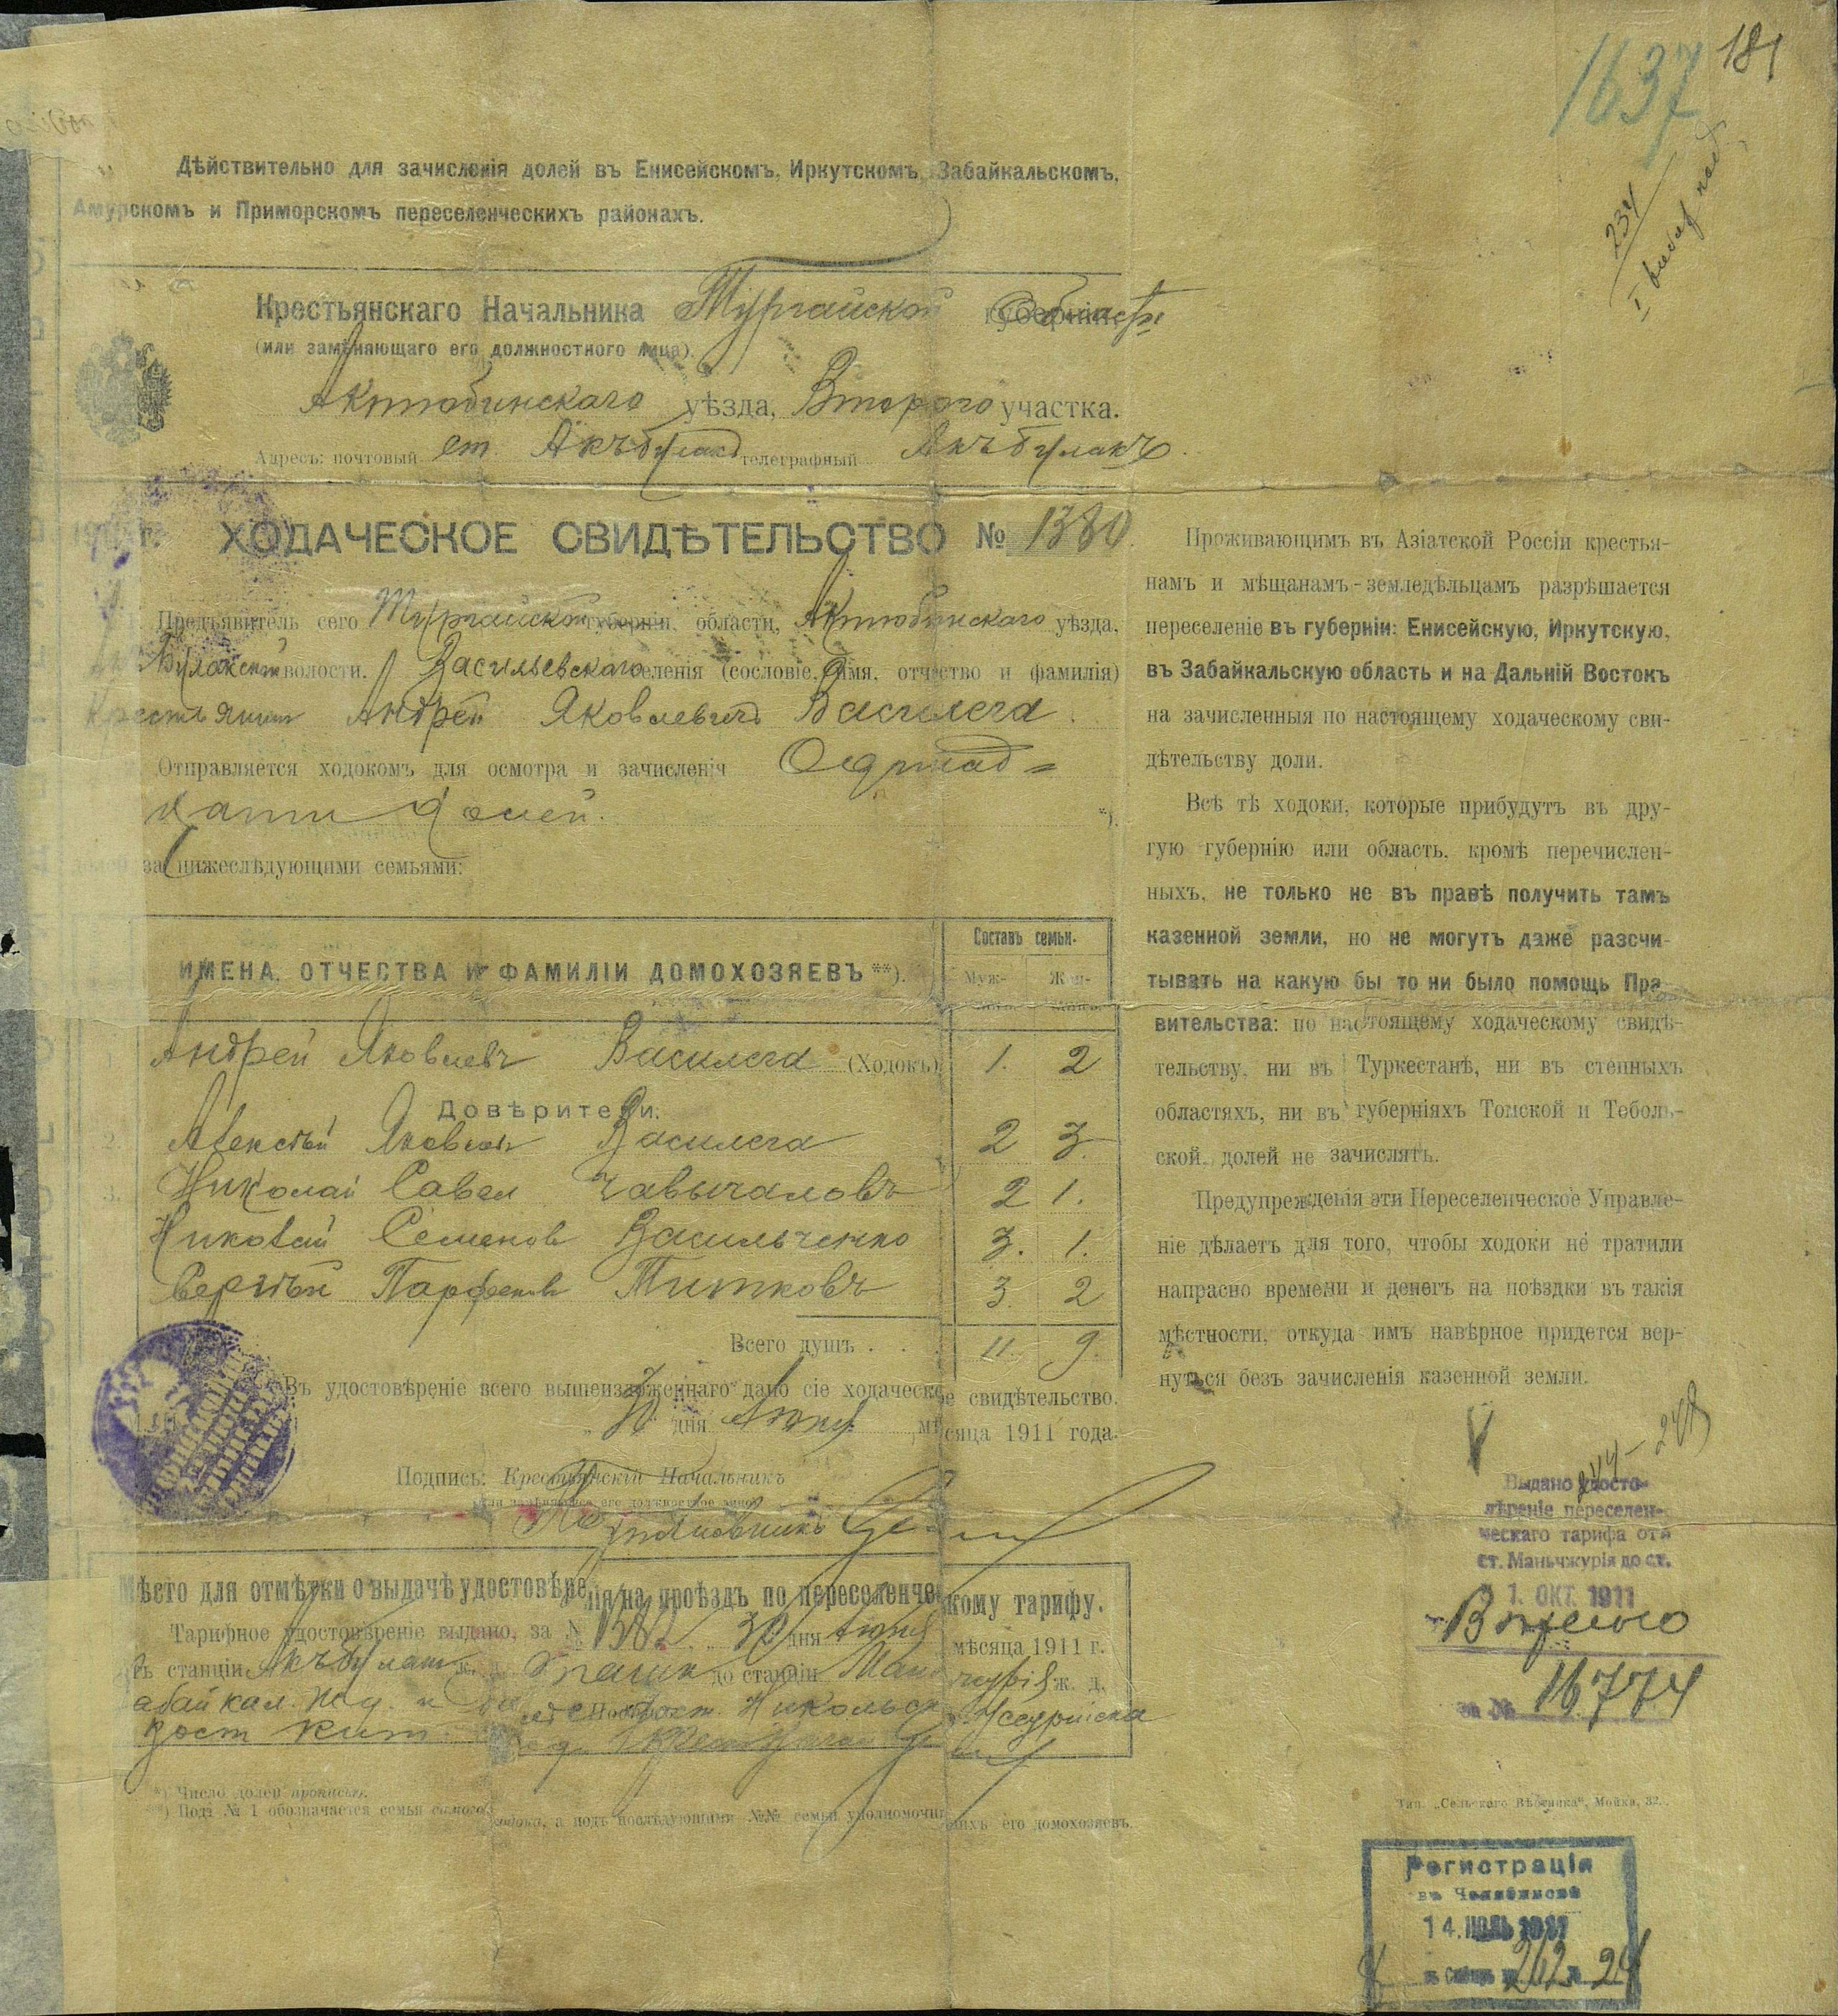 1637
181
234
Дѣйствительно для зачисленія долей въ Енисейскомъ, Иркутскомъ, Забайкальскомъ,
Амурскомъ и Приморскомъ переселенческихъ районахъ.
Крестьянскаго Начальника Тургайской губерніи Области
(или замѣняющаго его должностного лица)
Актюбинскаго уѣзда, Второго участка.
Адресъ: почтовый ст. Акъбулакъ телеграфный Акъбулакъ.
г. ХОДАЧЕСКОЕ СВИДѢТЕЛЬСТВО № 1380
Предъявитель сего Тургайской губерніи, области, Актюбинскаго уѣзда,
Булакской волости, Васильевскаго селенія (сословіе, имя, отчество и фамилія)
Крестьянин Андрей Яковлевичъ Василега.
Отправляется ходокомъ для осмотра и зачисленія Одиннад=
цати долей. *).
за нижеслѣдующими семьями:
ИМЕНА, ОТЧЕСТВА И ФАМИЛІИ ДОМОХОЗЯЕВЪ **).
Составъ семьи.
Муж- Жен-
Андрей Яковлевъ Василега (Ходокъ) 1. 2
Довѣрители:
2. Алексѣй Яковлевъ Василега 2 3.
3. Николай Савел Чавычаловъ 2 1.
Николай Семенов Васильченко 3. 1.
Сергѣй Парфенов Титковъ 3. 2
Всего душъ . . . 11. 9.
Въ удостовѣреніе всего вышеизложеннаго дано сіе ходаческое свидѣтельство.
30 дня Іюня мѣсяца 1911 года.
Подпись: Крестьянскій Начальникъ
(или замѣняющее его должностное лицо)
Мѣсто для отмѣтки о выдачѣ удостовѣренія на проѣздъ по переселенческому тарифу.
Тарифное удостовѣреніе выдано, за № 1382 30 дня Іюня мѣсяца 1911 г.
станціи Акъбулак до станціи Манчжурія ж. д.
Никольск Уссурійска
*) Число долей прописью.
**) Подъ № 1 обозначается семья самого ходока, а подъ послѣдующими №№ семьи уполномочившихъ его домохозяевъ.
Проживающимъ въ Азіатской Россіи крестья-
намъ и мѣщанамъ-земледѣльцамъ разрѣшается
переселеніе въ губерніи: Енисейскую, Иркутскую,
въ Забайкальскую область и на Дальній Востокъ
на зачисленныя по настоящему ходаческому сви-
дѣтельству доли.
Всѣ тѣ ходоки, которые прибудутъ въ дру-
гую губернію или область, кромѣ перечислен-
ныхъ, не только не въ правѣ получить тамъ
казенной земли, но не могутъ даже разсчи-
тывать на какую бы то ни было помощь Пра-
вительства: по настоящему ходаческому свидѣ-
тельству, ни въ Туркестанѣ, ни въ степныхъ
областяхъ, ни въ губерніяхъ Томской и Теболь-
ской, долей не зачислятъ.
Предупрежденія эти Переселенческое Управле-
ніе дѣлаетъ для того, чтобы ходоки не тратили
напрасно времени и денегъ на поѣздки въ такія
мѣстности, откуда имъ навѣрное придется вер-
нуться безъ зачисленія казенной земли.
Выдано удосто-
вѣреніе переселен-
ческаго тарифа отъ
ст. Маньчжурія до ст.
1. ОКТ. 1911
за № 16774
Тип. „Сельскаго Вѣстника“, Мойка, 32.
Регистрація
въ Челябинскѣ
14. ІЮЛЬ 1911